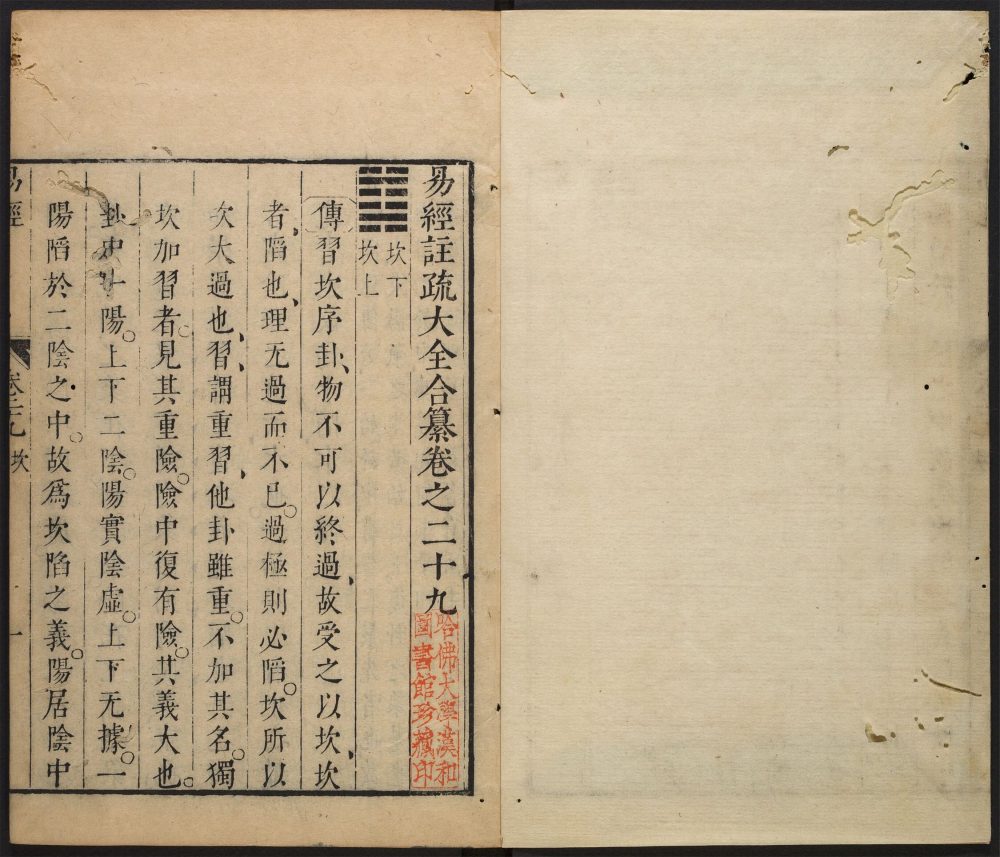 易經註疏大全合纂卷之二十九
哈佛大學漢和
圖書館珍藏印
坎下
坎上
傳習坎序卦、物不可以終過、故受之以坎、坎
者、陷也、理无過而不已。過極則必陷。坎所以
次大過也、習、謂重習、他卦雖重。不加其名。獨
坎加習者。見其重險。險中復有險。其義大也。
卦中一陽。上下二陰。陽實陰虛。上下无據。一
陽陷於二陰之中。故爲坎陷之義。陽居陰中
易經
卷之二十九
坎
一